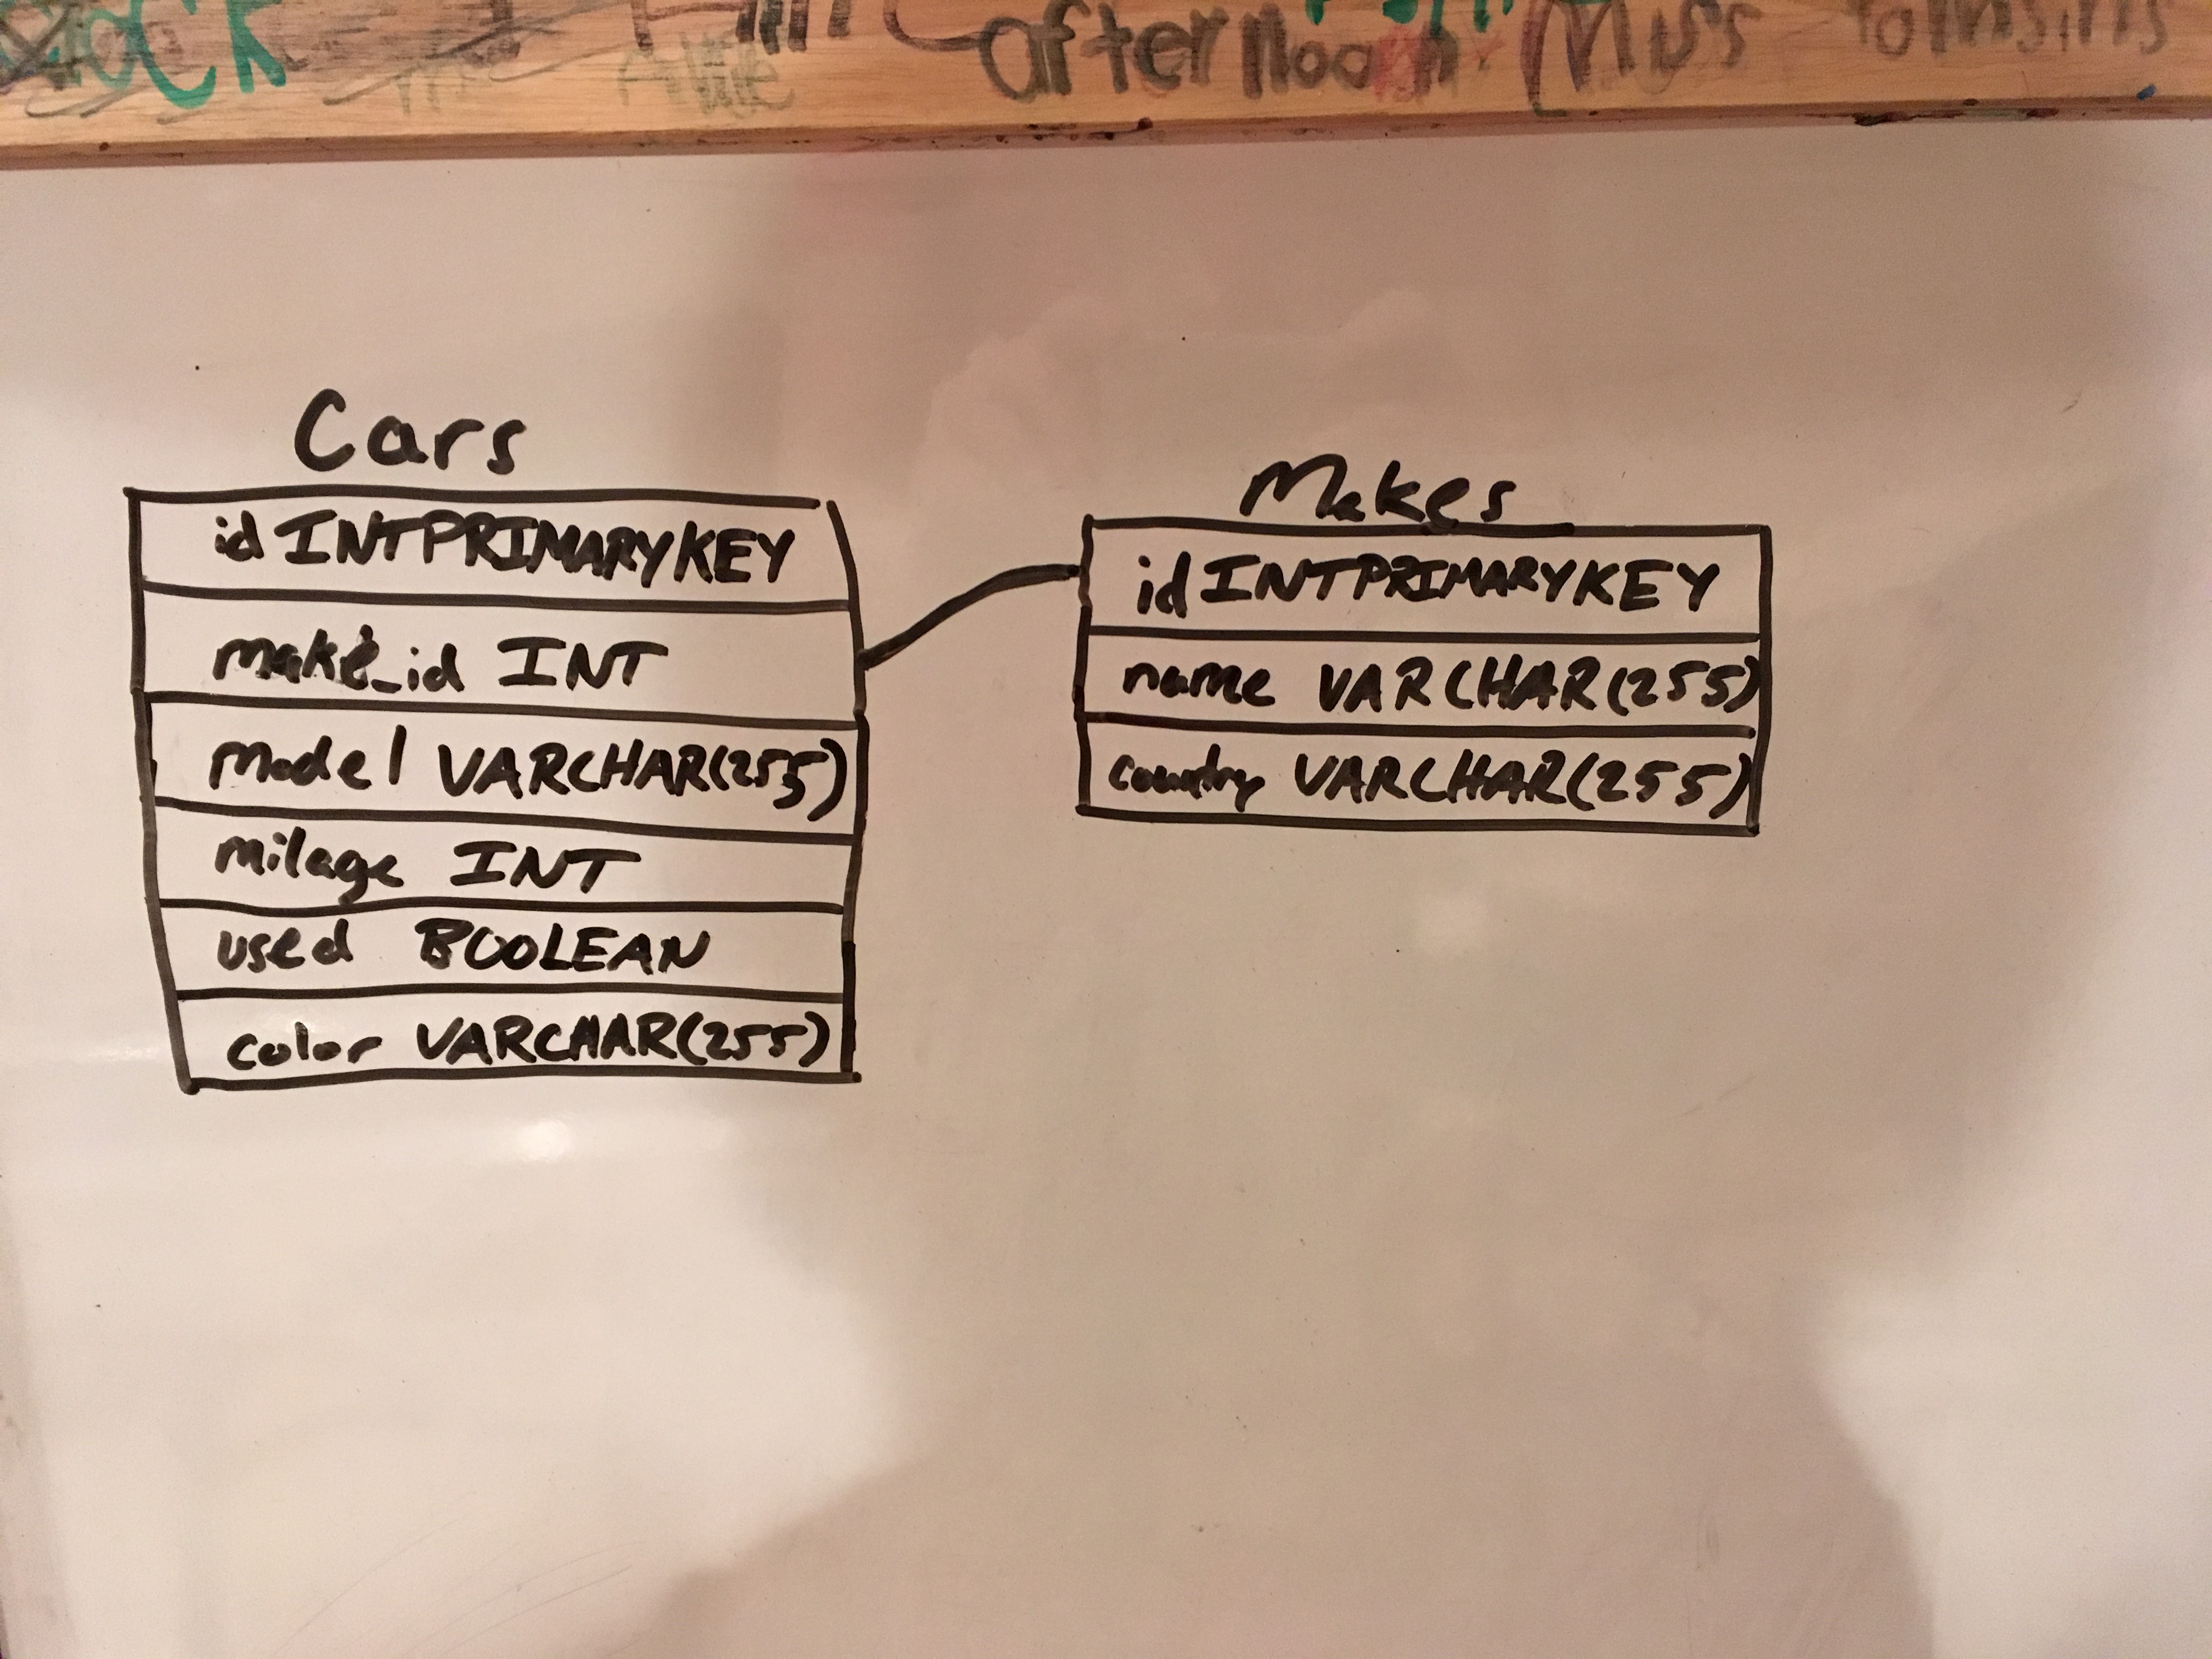 afternoon Miss
Cars
id INT PRIMARY KEY
make_id INT
model VARCHAR(255)
milage INT
used BOOLEAN
color VARCHAR(255)
Makes
id INT PRIMARY KEY
name VARCHAR(255)
country VARCHAR(255)